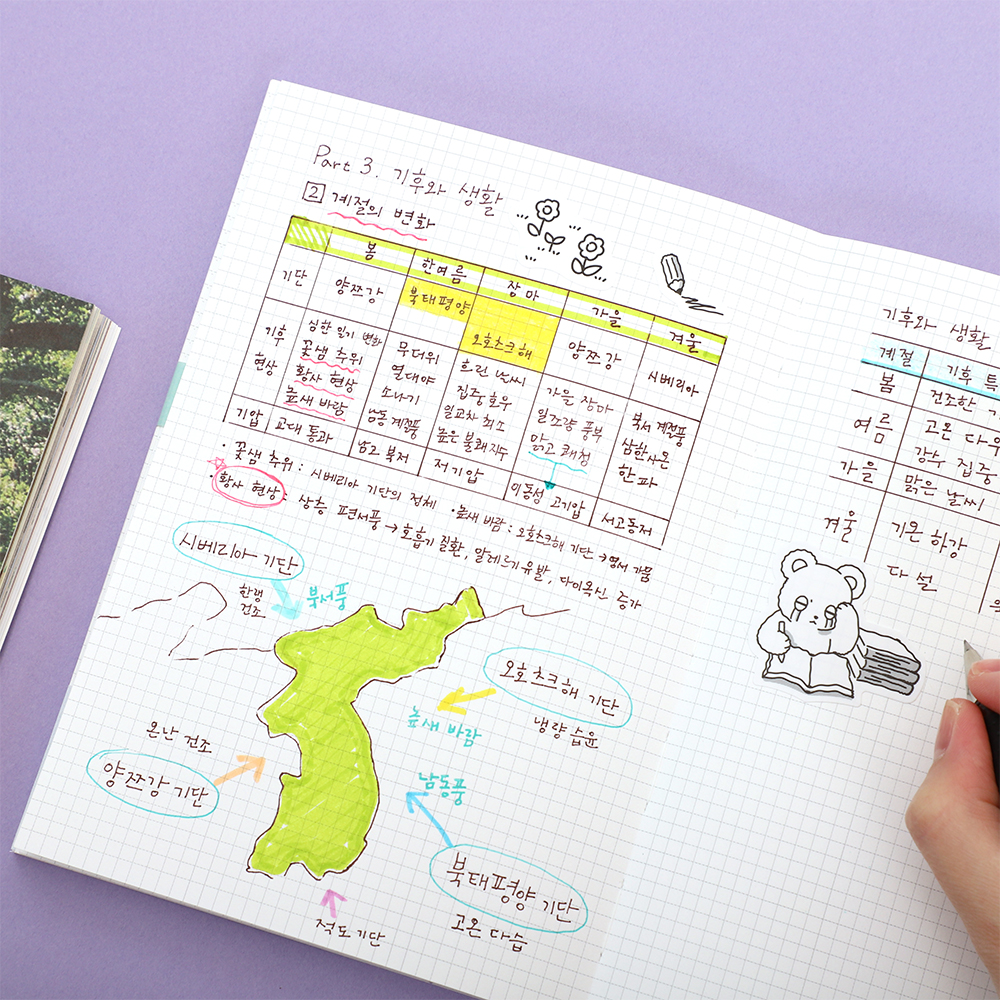 Part 3. 기후와 생활
2 계절의 변화
봄 한여름 장마 가을 겨울
기단 양쯔강 북태평양 오호츠크해 양쯔강 시베리아
기후 현상
심한 일기 변화
꽃샘 추위
황사 현상
높새 바람
무더위
열대야
소나기
남동 계절풍
흐린 날씨
집중 호우
일교차 최소
높은 불쾌지수
가을 장마
일조량 풍부
맑고 쾌청
북서 계절풍
삼한사온
한파
기압 교대 통과 남고 북저 저기압 이동성 고기압 서고동저
· 꽃샘 추위 : 시베리아 기단의 정체 · 높새 바람 : 오호츠크해 기단 → 영서 가뭄
· 황사 현상 : 상층 편서풍 → 호흡기 질환, 알레르기 유발, 다이옥신 증가
시베리아 기단
한랭
건조
북서풍
오호츠크해 기단
냉량 습윤
높새 바람
온난 건조
양쯔강 기단
남동풍
북태평양 기단
고온 다습
적도 기단
기후와 생활
계절 기후 특
봄 건조한
여름 고온 다
강수 집중
가을 맑은 날씨
겨울 기온 하강
다설